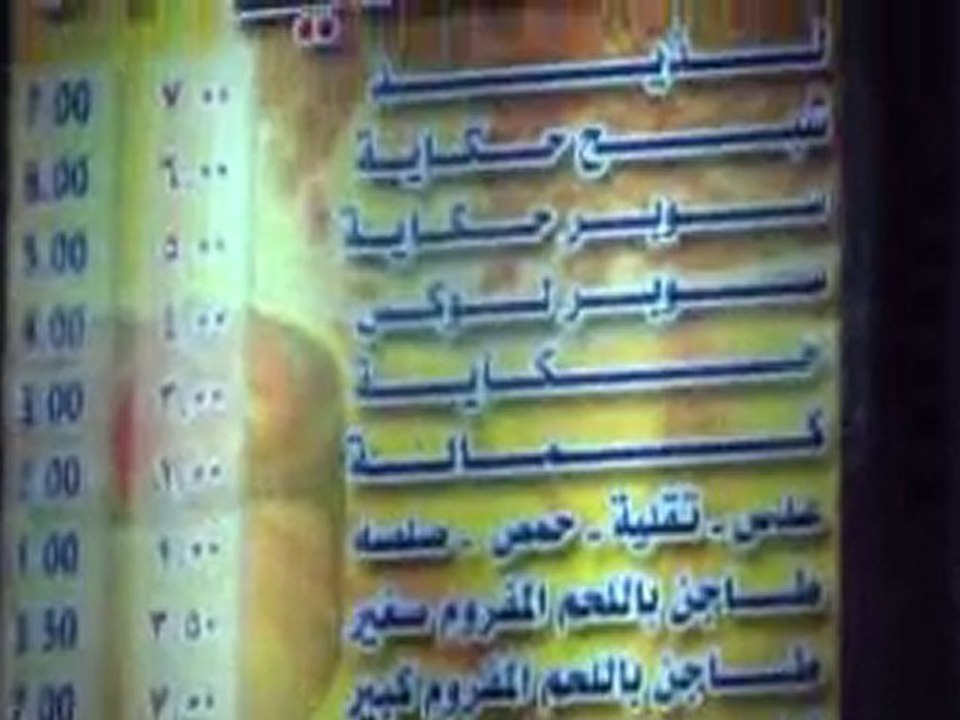 لـذيـذ ٧.٠٠ 7.00
شبـح حـكـايـة ٦.٠٠ 6.00
سـوبـر حـكـايـة ٥.٠٠ 5.00
سـوبـر لـوكـس ٤.٠٠ 4.00
حـكـايـة ٣.٠٠ 3.00
كـمـالـة ٢.٠٠ 2.00
عدس - تقلية - حمص - صلصه ١.٠٠ 1.00
طـاجن باللحم المفروم صغير ٣.٥٠ 3.50
طـاجن باللحم المفروم كبير ٧.٠٠ 7.00